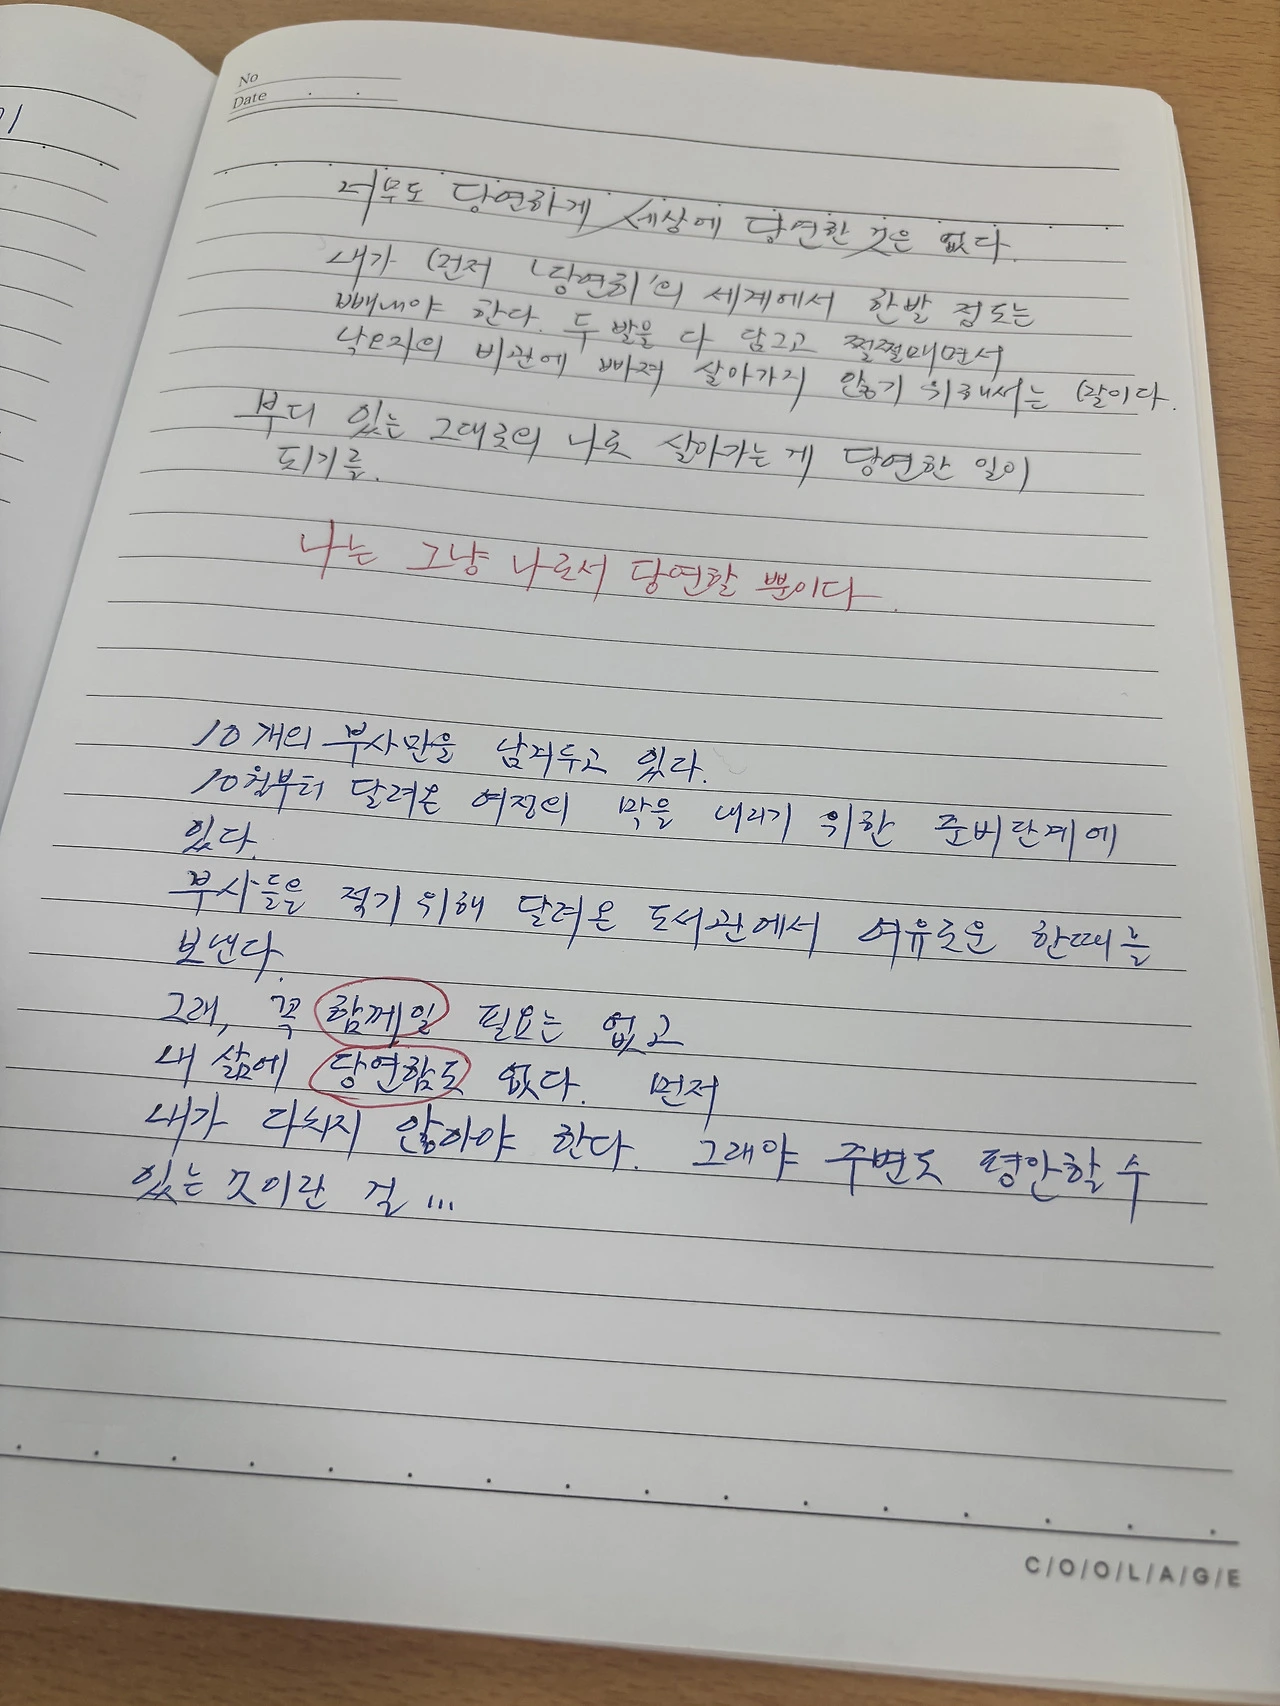 No
Date
너무도 당연하게 세상에 당연한 것은 없다.
내가 먼저 '당연히'의 세계에서 한발 정도는
빼내야 한다. 두 발을 다 담그고 쩔쩔매면서
낙오자의 비관에 빠져 살아가지 않기 위해서는 말이다.
부디 있는 그대로의 나로 살아가는 게 당연한 일이
되기를.
나는 그냥 나로서 당연할 뿐이다.
10개의 부사만을 남겨두고 있다.
10월부터 달려온 여정의 막을 내리기 위한 준비단계에
있다.
부사들을 적기 위해 달려온 도서관에서 여유로운 한때를
보낸다.
그래, 꼭 함께일 필요는 없고
내 삶에 당연함도 없다. 먼저
내가 다치지 않아야 한다. 그래야 주변도 평안할 수
있는 것이란 걸...
C/O/O/L/A/G/E